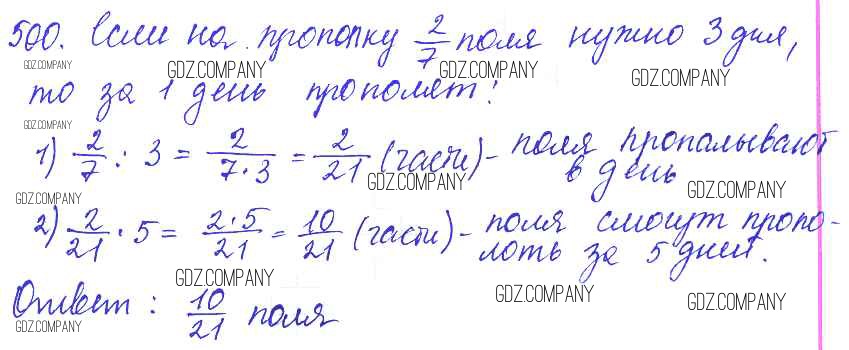 500. Если на прополку 2/7 поля нужно 3 дня,
GDZ.COMPANY GDZ.COMPANY GDZ.COMPANY GDZ.COMPANY
то за 1 день прополят:
GDZ.COMPANY
1) 2/7 : 3 = 2/7·3 = 2/21 (части) - поля пропалывают
в день
GDZ.COMPANY GDZ.COMPANY GDZ.COMPANY
2) 2/21 · 5 = 2·5/21 = 10/21 (части) - поля смогут пропо-
лоть за 5 дней.
GDZ.COMPANY GDZ.COMPANY GDZ.COMPANY
Ответ : 10/21 поля
GDZ.COMPANY